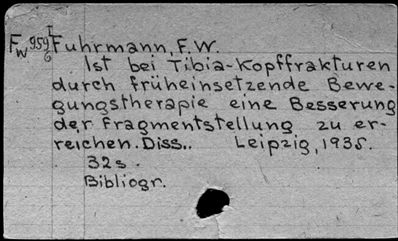 Fw 959 I/6 Fuhrmann, F.W.
Ist bei Tibia-Kopffrakturen
durch früheinsetzende Bewe-
gungstherapie eine Besserung
der Fragmentstellung zu er-
reichen. Diss.. Leipzig, 1935.
32s.
Bibliogr.